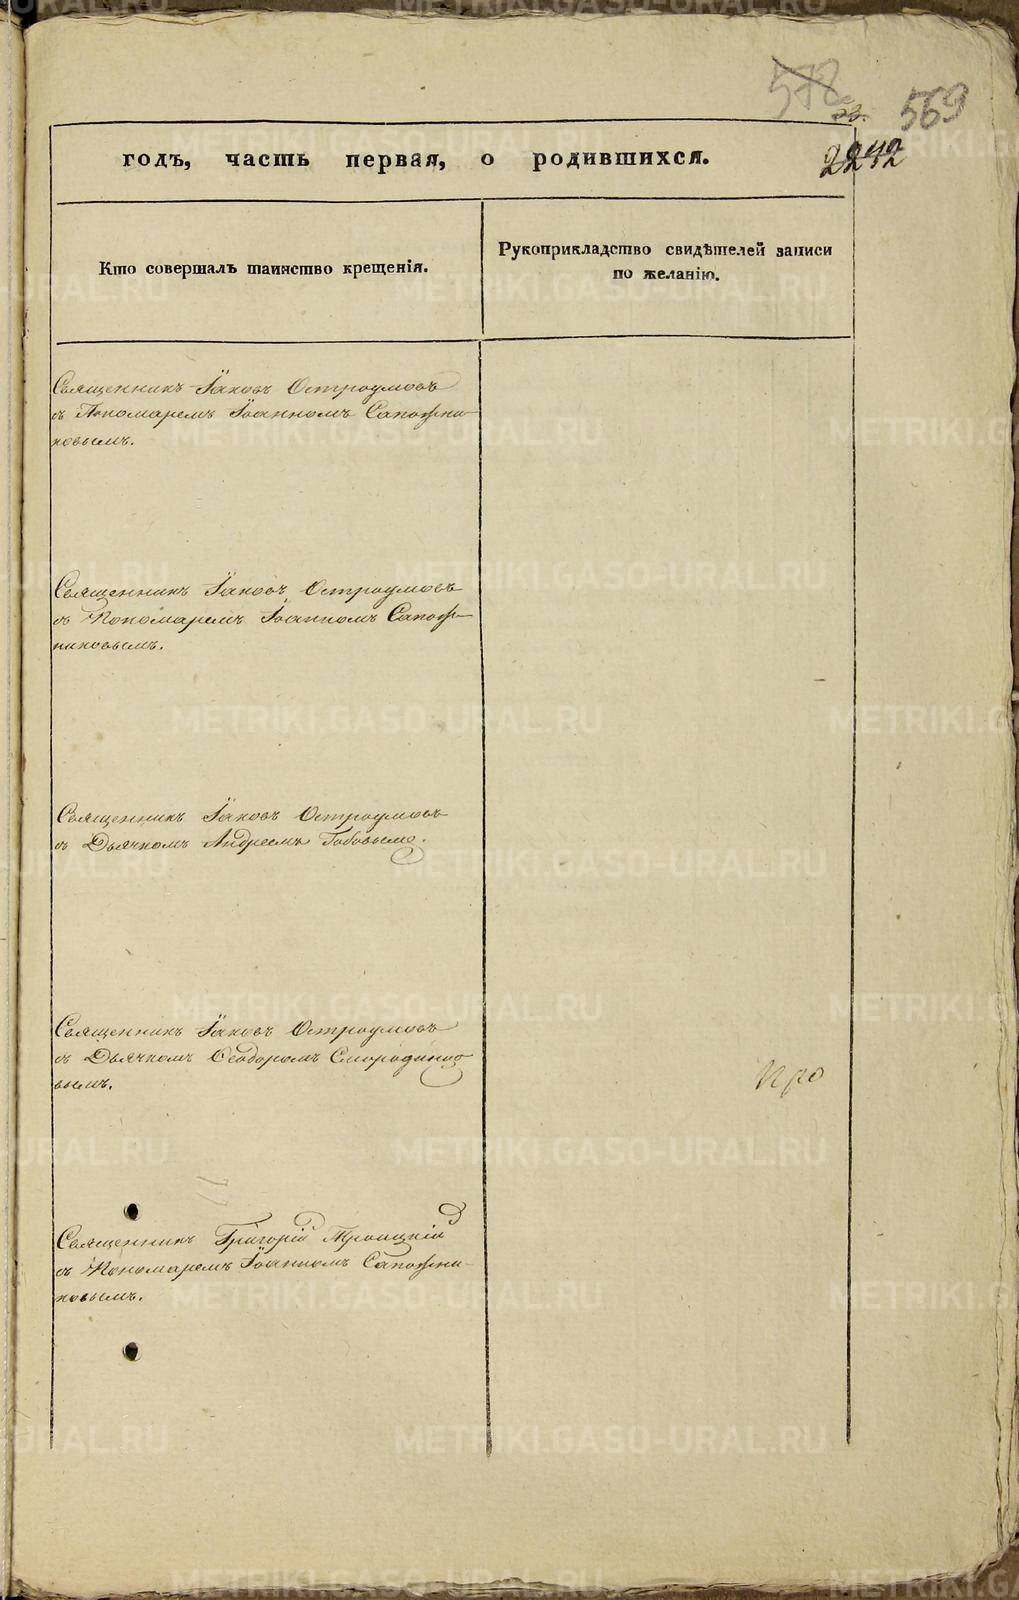 578
22.
569
2242
годъ, часть первая, о родившихся.
Кто совершалъ таинство крещенія.
Рукоприкладство свидѣтелей записи
по желанію.
Священникъ Іаковъ Остроумовъ
съ Пономаремъ Іоанномъ Сапожни-
ковымъ.
Священникъ Іаковъ Остроумовъ
съ Пономаремъ Іоанномъ Сапож-
никовымъ.
Священникъ Іаковъ Остроумовъ
съ Дьячкомъ Андреемъ
Священникъ Іаковъ Остроумовъ
съ Дьячкомъ Ѳеодоромъ Смородинцо
вымъ.
Про
Священникъ Григорій Троицкій
съ Пономаремъ Іоанномъ Сапожни-
ковымъ.
METRIKI.GASO-URAL.RU